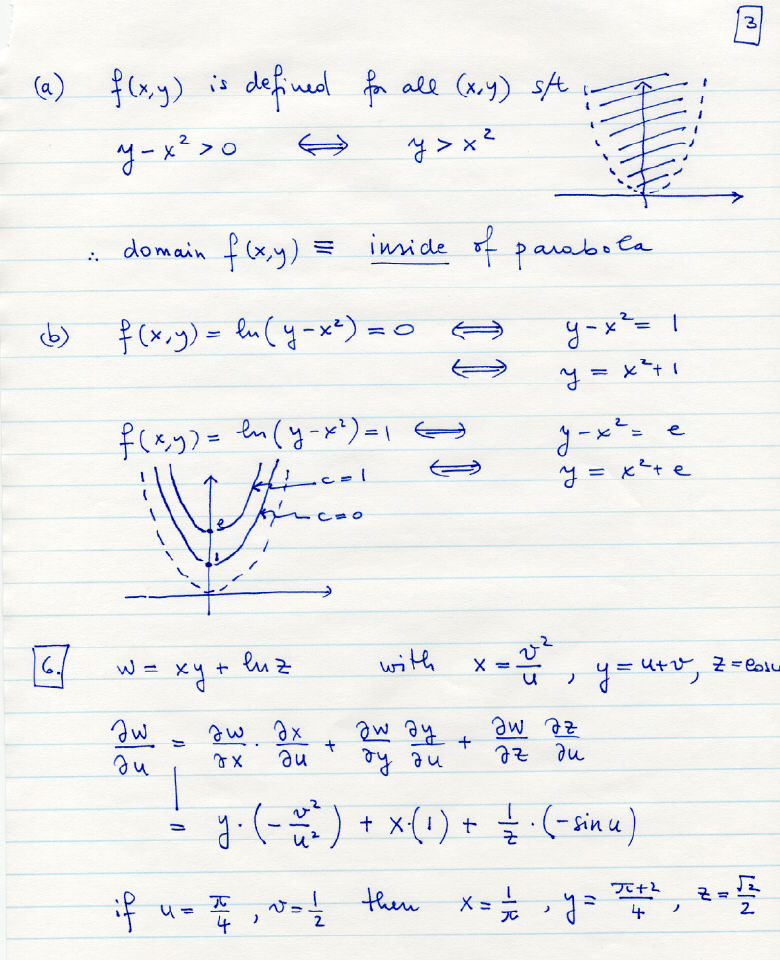 3
(a) f(x,y) is defined for all (x,y) s/t
y - x² > 0 ⟺ y > x²
∴ domain f(x,y) ≡ inside of parabola
(b) f(x,y) = ln(y-x²) = 0 ⟺ y - x² = 1
⟺ y = x² + 1
f(x,y) = ln(y-x²) = 1 ⟺ y - x² = e
⟺ y = x² + e
c = 1
c = 0
e
1
6. w = xy + ln z with x = v²/u , y = u+v, z = cos u
∂w/∂u = ∂w/∂x · ∂x/∂u + ∂w/∂y ∂y/∂u + ∂w/∂z ∂z/∂u
= y · (- v²/u²) + x·(1) + 1/z · (-sin u)
if u = π/4 , v = 1/2 then x = 1/π , y = π+2/4 , z = √2/2